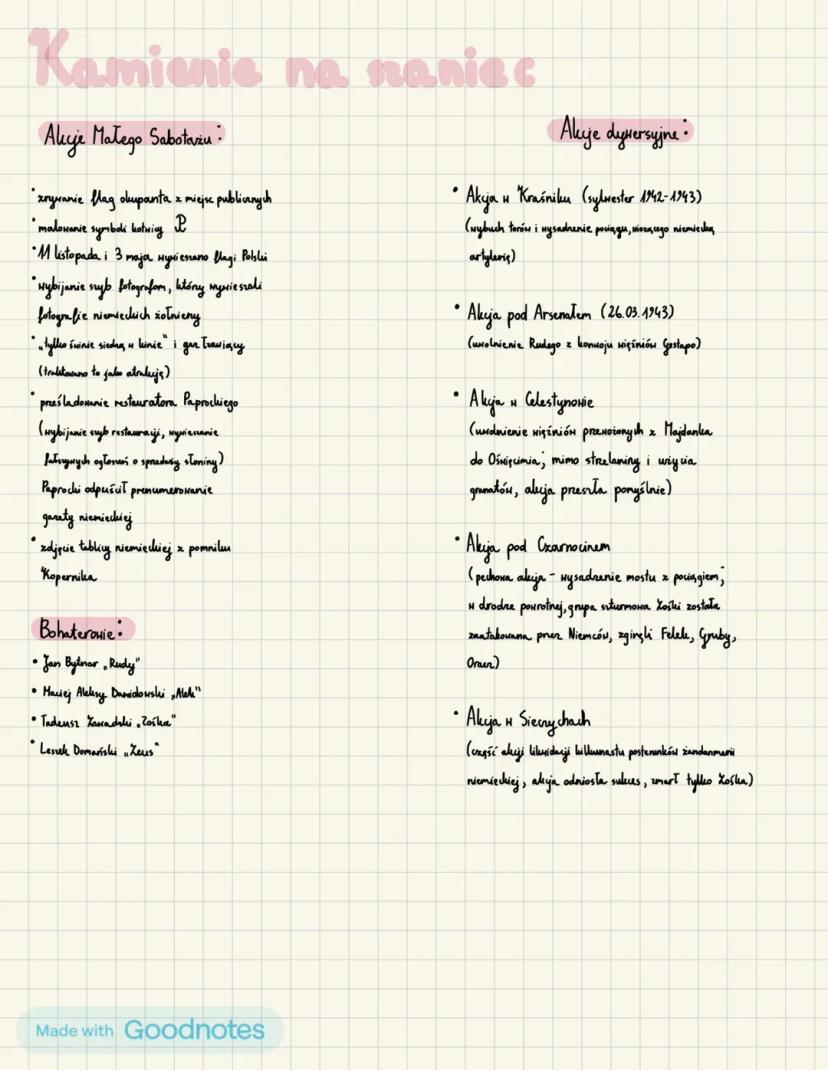 Kamienie na szaniec
Akcje Małego Sabotażu:
• zrywanie flag okupanta z miejsc publicznych
• malowanie symboli kotwicy
• 11 listopada i 3 maja wywieszano flagi Polski
• wybijanie szyb fotografom, który wywieszali
fotografie niemieckich żołnierzy
• „tylko świnie siedzą w kinie" i gaz łzawiący
(traktowano to jako atrakcję)
• prześladowanie restauratora Paprockiego
(wybijanie szyb restauracji, wywieszanie
fałszywych ogłoszeń o sprzedaży słoniny)
Paprocki odpuścił prenumerowanie
gazety niemieckiej
• zdjęcie tablicy niemieckiej z pomnika
Kopernika
Bohaterowie:
• Jan Bytnar „Rudy"
• Maciej Aleksy Dawidowski „Alek"
• Tadeusz Zawadzki „Zośka"
• Leszek Domański „Zeus"
Akcje dywersyjne:
• Akcja w Kraśniku (sylwester 1942-1943)
(wybuch torów i wysadzenie pociągu, wiozącego niemiecką
artylerię)
• Akcja pod Arsenałem (26.03.1943)
(uwolnienie Rudego z konwoju więźniów Gestapo)
• Akcja w Celestynowie
(uwolnienie więźniów przewożonych z Majdanka
do Oświęcimia; mimo strzelaniny i użycia
granatów, akcja przeszła pomyślnie)
• Akcja pod Czarnocinem
(pechowa akcja - wysadzenie mostu z pociągiem;
w drodze powrotnej, grupa szturmowa Zośki została
zaatakowana przez Niemców, zginęli Felek, Gruby,
Oracz)
• Akcja w Sieczychach
(część akcji likwidacji kilkunastu posterunków żandarmerii
niemieckiej, akcja odniosła sukces, zmarł tylko Zośka)
Made with Goodnotes